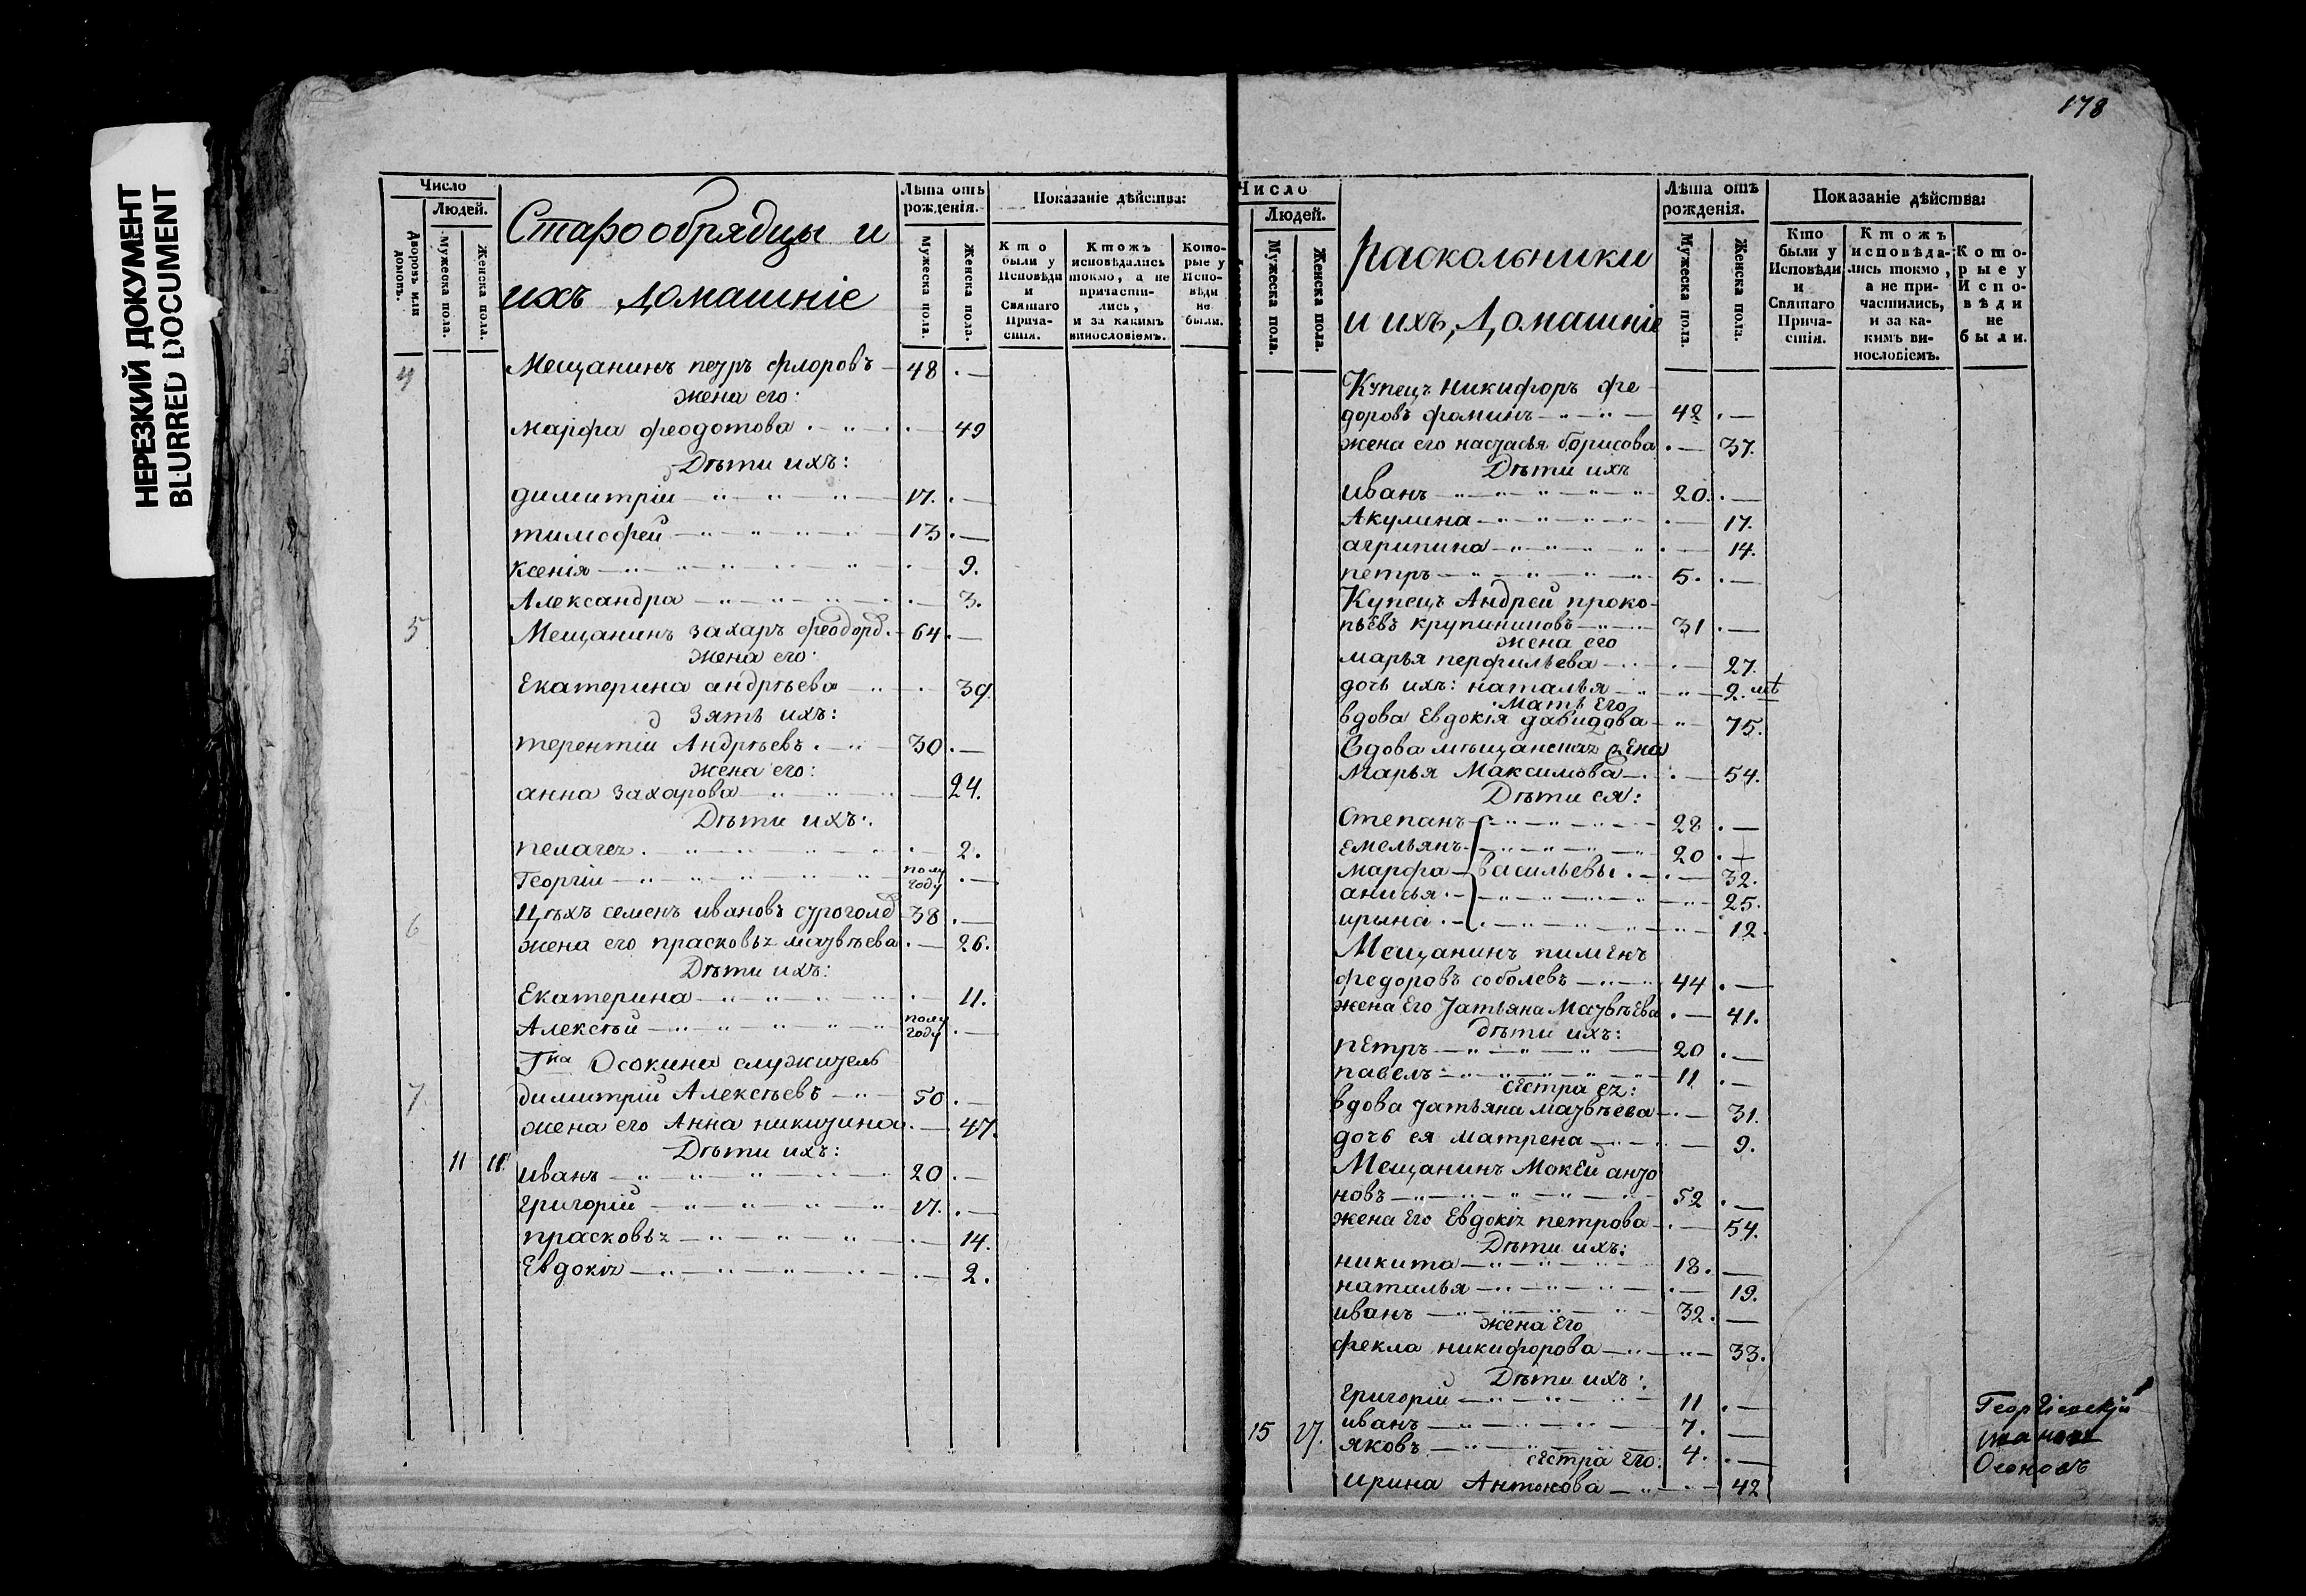 НЕРЕЗКИЙ ДОКУМЕНТ
BLURRED DOCUMENT
Число
Людей.
Дворовъ или домовъ.
Мужеска пола.
Женска пола.
Старообрядцы и
ихъ домашніе
Лѣта отъ рожденія.
Мужеска пола.
Женска пола.
Показаніе дѣйства:
Кто были у Исповѣди и Святаго Прича-стія.
Ктожъ исповѣдались токмо, а не причасти-лись, и за какимъ винословіемъ.
Кото-рые у Испо-вѣди не были.
4 Мещанинъ петръ флоровъ — 48 . —
жена его:
марфа феодотова . — . — 49
Дѣти ихъ:
димитрій — 17. . —
тимофей — 13 . —
Ксенія — . — 9.
Александра — . — 3.
5 Мещанинъ захаръ феодоровъ . — 64 . —
жена его:
Екатерина андрѣева — . 39.
Зять ихъ:
терентій Андрѣевъ . — 30 . —
жена его:
анна захарова — 24.
Дѣти ихъ:
пелагея . — . — 2.
Георгій — полу году . —
6 Цѣхъ семенъ ивановъ 38 . —
жена его прасковья матвѣева . — 26.
Дѣти ихъ:
Екатерина — . — 11.
Алексѣй — полу году . —
Гна Осокина служитель
7 димитрій Алексѣевъ — 50 . —
жена его Анна никитина . — 47.
Дѣти ихъ:
11 11. иванъ — 20 . —
григорій — 17. . —
прасковья — . — 14.
Евдокія — . — 2.
178
Число
Людей.
Мужеска пола.
Женска пола.
раскольники
и ихъ, Домашніе
Лѣта отъ рожденія.
Мужеска пола.
Женска пола.
Показаніе дѣйства:
Кто были у Исповѣди и Святаго Прича-стія.
Ктожъ исповѣда-лись токмо, а не при-частились, и за ка-кимъ ви-нословіемъ.
Кото-рые у Испо-вѣди не были.
Купецъ Никифоръ фе-
доровъ фоминъ — 42 . —
жена его настасья борисова . — 37.
Дѣти ихъ
иванъ — 20. . —
Акулина — . — 17.
агрипина — . — 14.
петръ — 5. . —
Купецъ Андрей проко-
пьевъ крупининовъ — 31 . —
жена его
марья перфильева — . — 27.
дочь ихъ: наталья — 2. лѣ
мать его
вдова Евдокія давидова — 75.
Вдова мѣщанская жена
Марья Максимова — . — 54.
Дѣти ея:
Степанъ — 28 . —
емельянъ — 20 . —
марфа — васильевы . — . — 32.
анисья . — 25.
ирына . — 12.
Мещанинъ пименъ
федоровъ соболевъ — 44 . —
жена Его Татьяна Матвѣева . — 41.
дѣти ихъ:
пЕтръ — 20 . —
павелъ — 11 . —
сестра ея:
вдова татьяна матвѣева — . — 31.
дочь ея матрена — 9.
Мещанинъ Мокей анто
новъ — 52 . —
жена Его Евдокія петрова — . — 54.
Дѣти ихъ:
никита — 18. —
наталья — . — 19.
иванъ — 32. —
жена Его
фекла никифорова — 33.
Дѣти ихъ:
григорій — 11 . —
15 17. иванъ — 7. —
яковъ — 4. . —
сестра Его:
ирина Антонова — 42
Георгіевскій